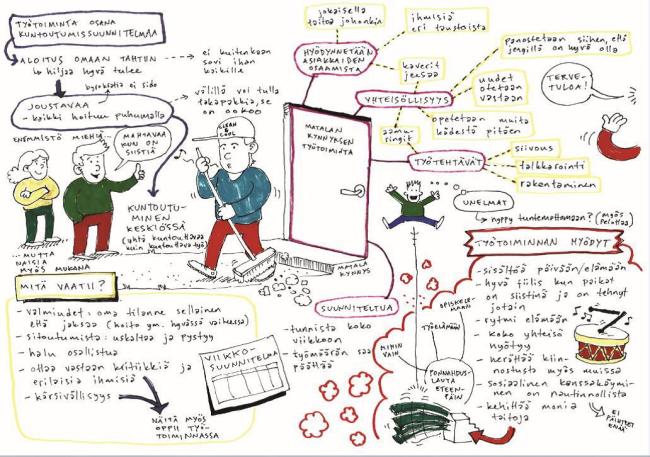 TYÖTOIMINTA OSANA
KUNTOUTUMISSUUNNITELMAA
ALOITUS OMAAN TAHTIIN
↳ hiljaa hyvä tulee
ei kuitenkaan
sovi ihan
kaikille
byrokratia ei sido
JOUSTAVAA
- kaikki hoituu puhumalla
välillä voi tulla
takapakkia, se
on ookoo
ENEMMISTÖ MIEHIÄ...
MAHTAVAA
KUN ON
SIISTIÄ
... MUTTA
NAISIA
MYÖS MUKANA
KUNTOUTU-
MINEN
KESKIÖSSÄ
(yhtä kuntouttavaa
kuin kuntouttava työ)
CLEAN
& COOL
MATALAN
KYNNYKSEN
TYÖTOIMINTA
MATALA
KYNNYS
jokaisella
taitoa johonkin
ihmisiä
eri taustoista
HYÖDYNNETÄÄN
ASIAKKAIDEN
OSAAMISTA
kaverit
jeesaa
YHTEISÖLLISYYS
panostetaan siihen, että
jengillä on hyvä olla
uudet
otetaan
vastaan
opetetaan muita
kädestä pitäen
aamu-
ringit
TYÖTEHTÄVÄT
siivous
talkkarointi
rakentaminen
TERVE-
TULOA!
UNELMAT
↳ hyppy tuntemattomaan? (myös
pelottaa)
TYÖTOIMINNAN HYÖDYT
- sisältöä päivään/elämään
- hyvä fiilis kun paikat
on siistinä ja on tehnyt
jotain
- rytmi elämään
- koko yhteisö
hyötyy
- herättää kiin-
nostusta myös muissa
- sosiaalinen kanssakäymi-
nen on nautinnollista
- kehittää monia
taitoja
EI
PÄIHTEET
ENÄÄ
MITÄ VAATII?
- valmiudet: oma tilanne sellainen
että jaksaa (hoito ym. hyvässä vaiheessa)
- sitoutumista: uskaltaa ja pystyy
- halu osallistua
- ottaa vastaan kritiikkiä ja
erilaisia ihmisiä
- kärsivällisyys
NÄITÄ MYÖS
OPPII TYÖ-
TOIMINNASSA
VIIKKO-
SUUNNITELMA
SUUNNITELTUA
- tunnista koko
viikkoon
- työmäärän saa
päättää
MIHIN
VAIN
TYÖELÄMÄÄN
OPISKELE-
MAAN
PONNAHDUS-
LAUTA
ETEEN-
PÄIN